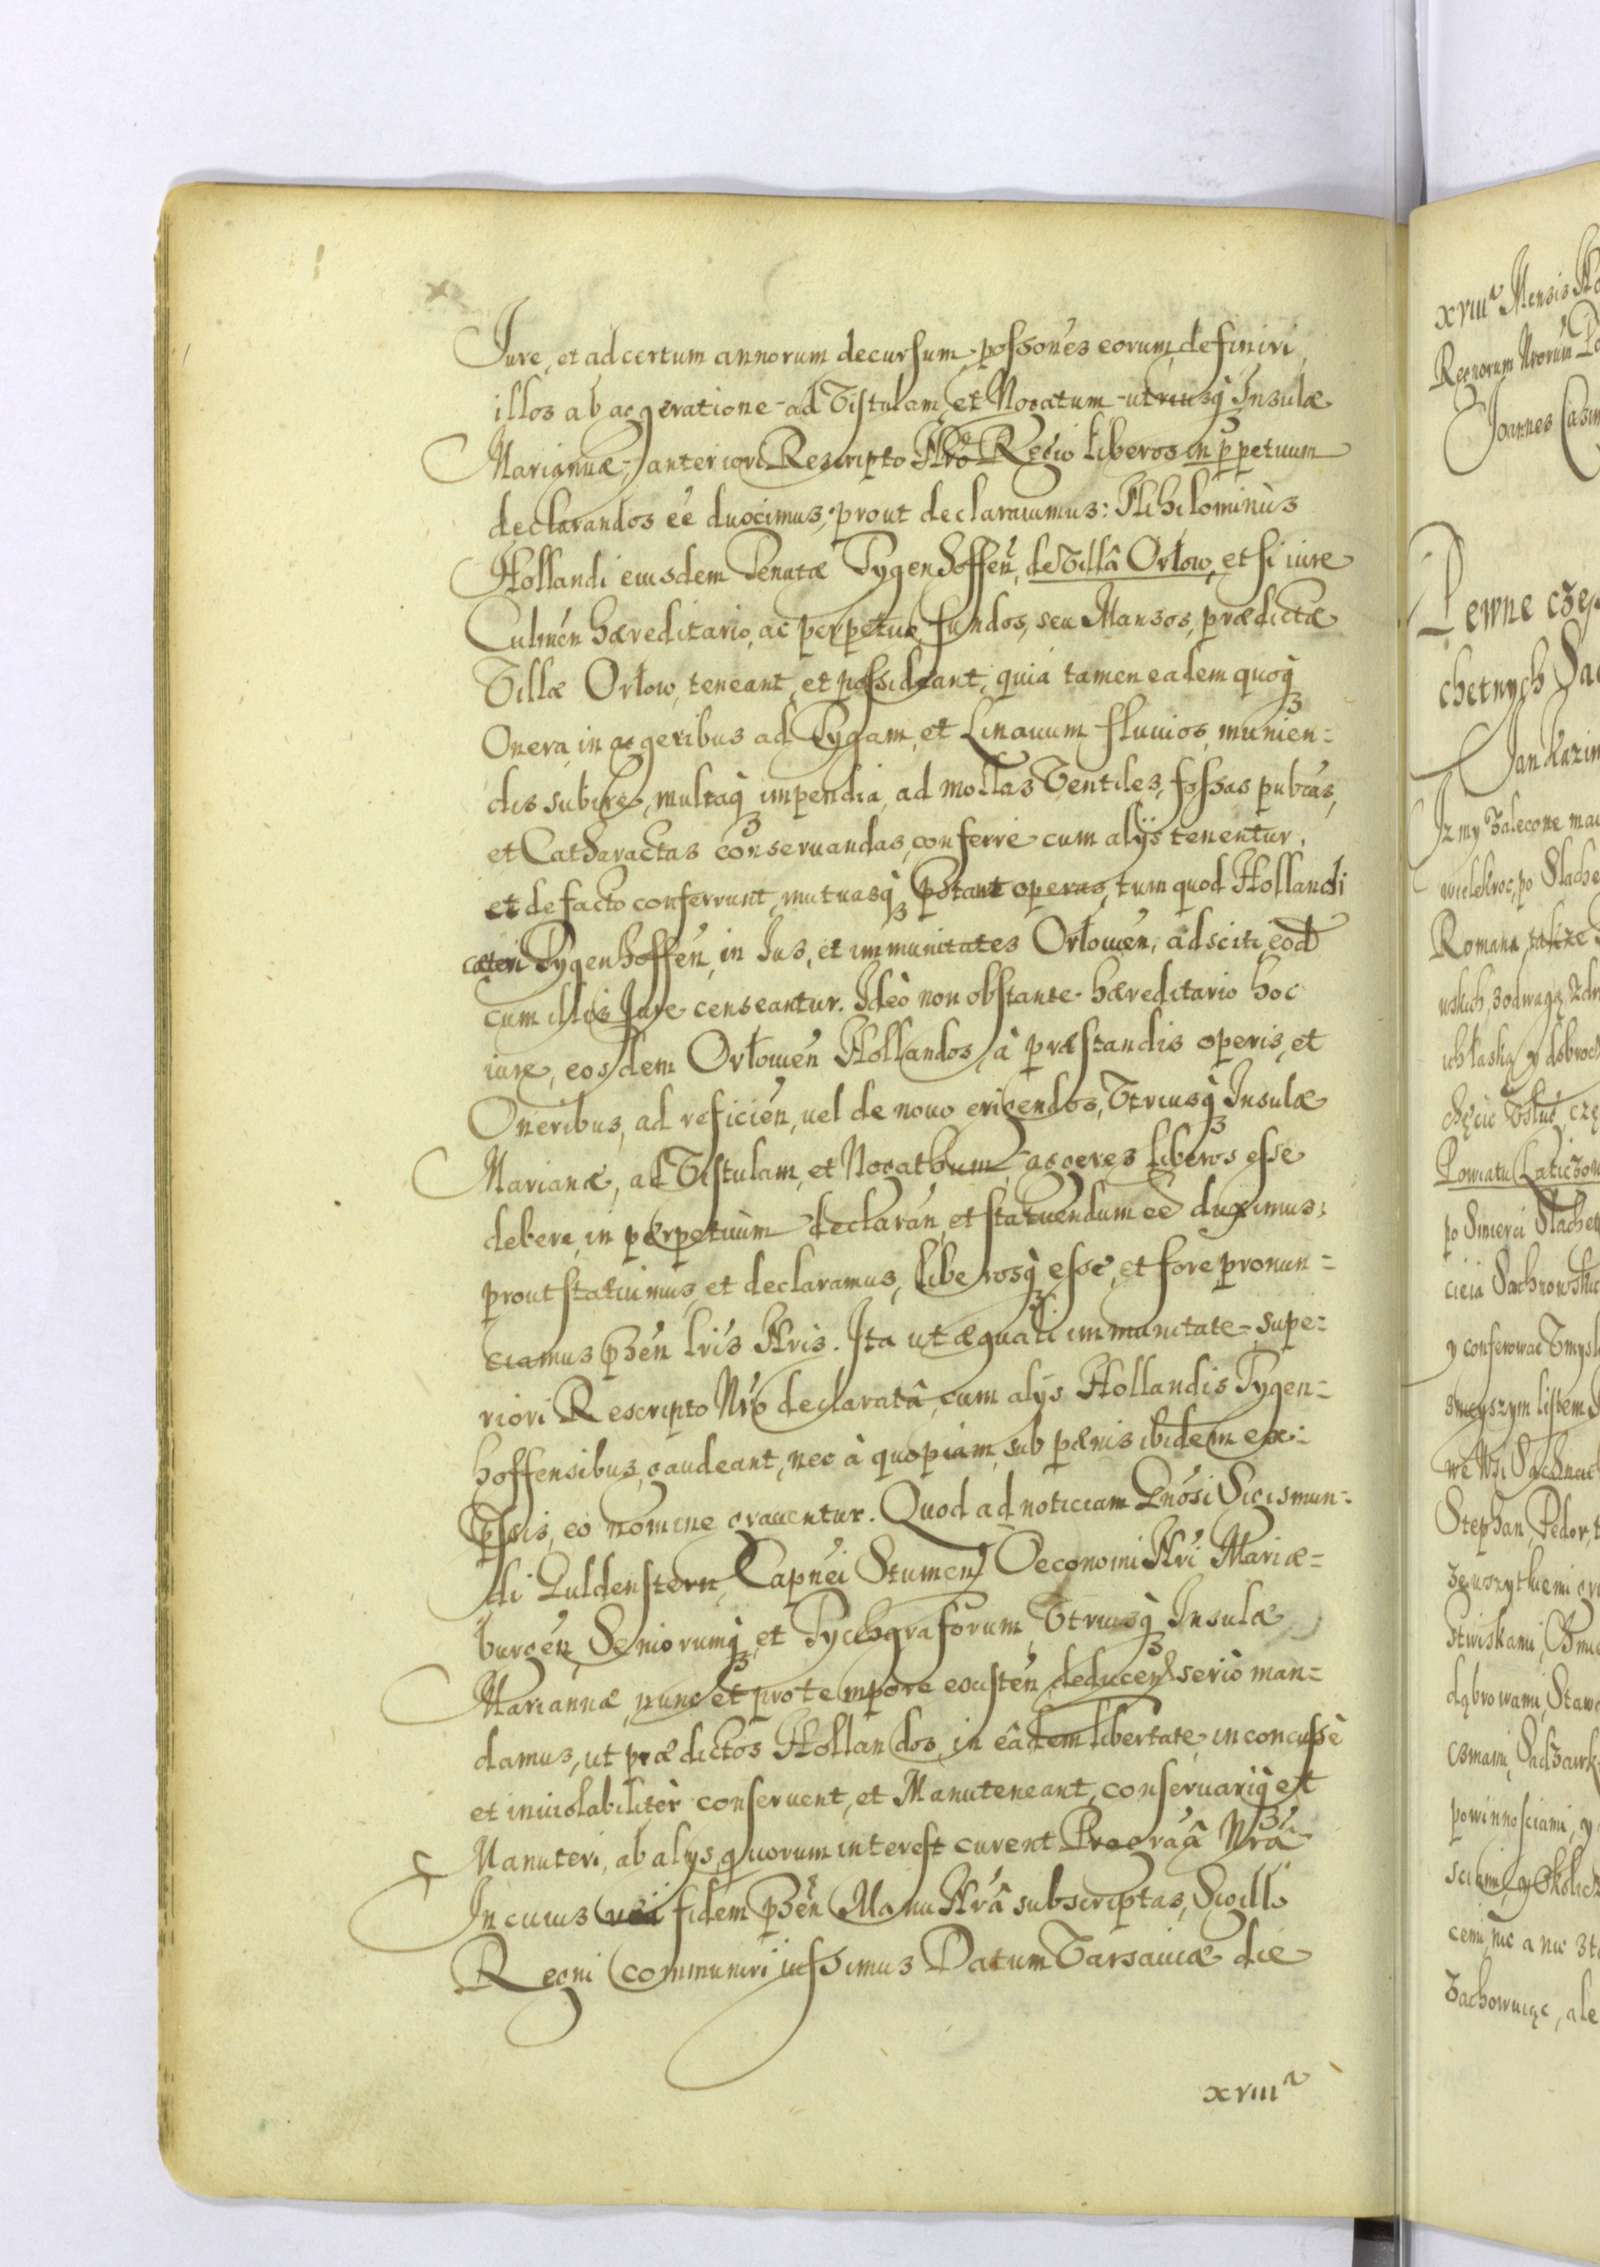 Jure, et ad certum annorum decursum, possones eorum definiri,
illos ab aggeratione ad Vistulam, et Nogatum utriusq Insulæ
Mariannæ, anteriori Rescripto Nro Regio liberos in ppetuum
declarandos ee duximus, prout declarauimus: Nihilominùs
Hollandi eiusdem Tenutæ Tygenhoffen, de Villâ Orłow, et si iure
Culmen hæreditario, ac perpetuo fundos, seu Mansos, prædictæ
Villæ Orłow, teneant, et possideant, quia tamen eadem quoqȝ
Onera, in aggeribus ad Tygam, et Linauum fluuios, munien=
dis subire, multaqȝ impendia, ad mollas Ventiles, fossas publcas,
et Catharactas conseruandas, conferre cum alijs tenentur,
et de facto conferrunt, mutuasqȝ pstant operas, tum quod Hollandi
cæteri Tygenhoffen, in Jus, et immunitates Orłouien, adsciti, eod
cum illis Jure censeantur. Ideò non obstante hæreditario hoc
iure, eosdem Orłowien Hollandos, à præstandis operis, et
Oneribus, ad reficien, uel de nouo erigendos, Vtriusqȝ Insulæ
Marianæ, ad Vistulam, et Nogathum, aggeres liberos esse
debere, in perpetuùm declaran, et statuendum ee duximus;
prout statuimus, et declaramus, liberosqȝ esse, et fore pronun=
ciamus pȝen lris Nris. Ita ut æquali immunitate, supe=
riori Rescripto Nro declaratâ, cum alijs Hollandis Tygen=
hoffensibus, gaudeant, nec à quopiam, sub pænis ibidem ex=
pssis, eo nomine grauentur. Quod ad noticiam Gnosi Sigismun=
di Guldenstern, Capnei Stumen, Oeconomi Nri Mariæ=
burgen, Seniorumqȝ et Tychgraforum, Vtriusqȝ Insulæ
Mariannæ, nunc et pro tempore existen, deducen, seriò man=
damus, ut prædictos Hollandos, in eâdem libertate, inconcussè
et inuiolabilitèr conseruent, et Manuteneant, conseruariqȝ et
Manuteri, ab alijs, quorum interest curent Pro grââ Nrâ
In cuius rei fidem pȝen Manu Nrâ subscriptas, Sigillo
Regni communiri iussimus Datum Varsauiæ die
xviiiª
xviiiª Mensis
Regnorum Nrorum
Joannes
Pewne
chetnych
Jan
Iz my zalecone
wielekroc, po
Romana, także
Powiatu
po Smierci
y conferowac
listem
Stephan, Fedor,
dąbrowami,
powinnosciami, y
ale